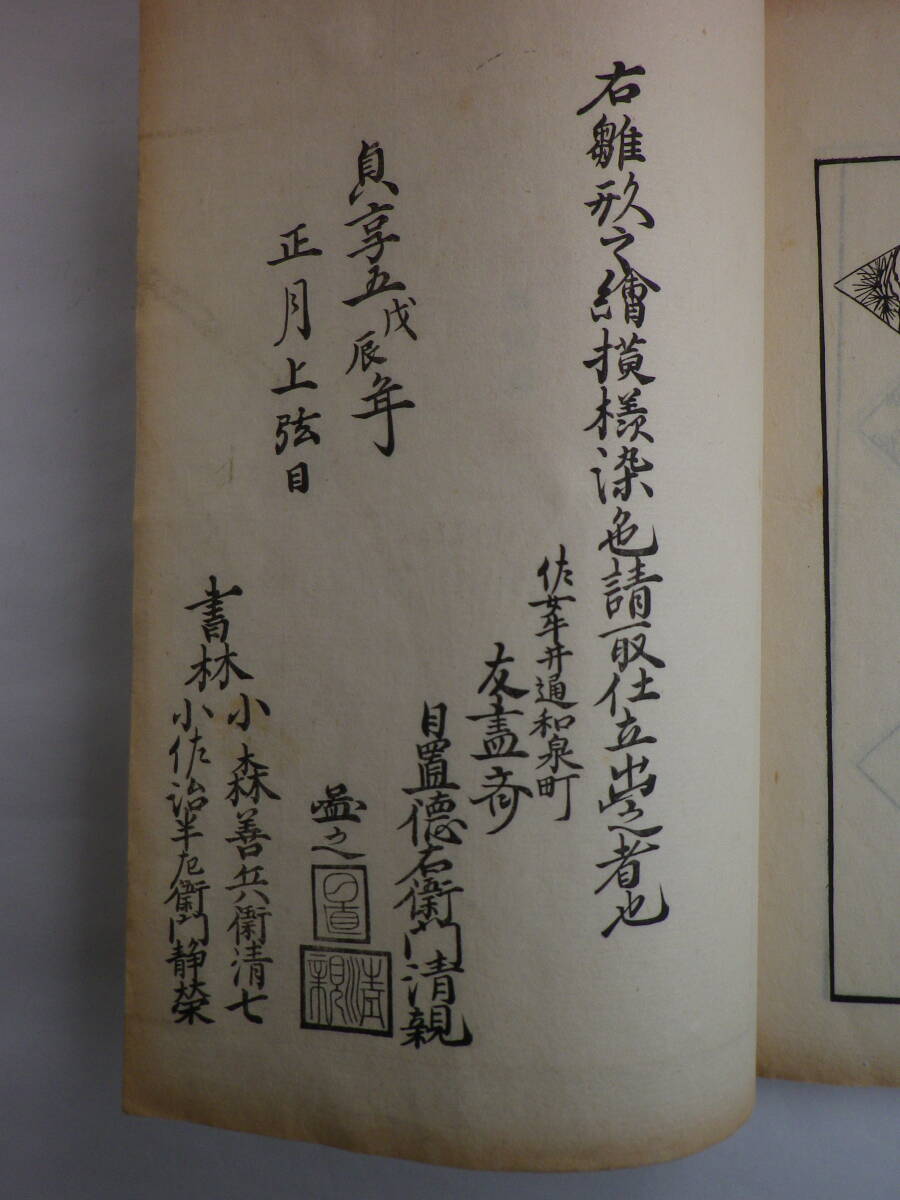 右雛形之繪模様染色請取仕立出之者也
佐女牛井通和泉町
友盡斎
日置徳右衛門清親
圖之
清親
貞享五戊辰年
正月上弦日
書林
小森善兵衛清七
小佐治半左衛門静榮